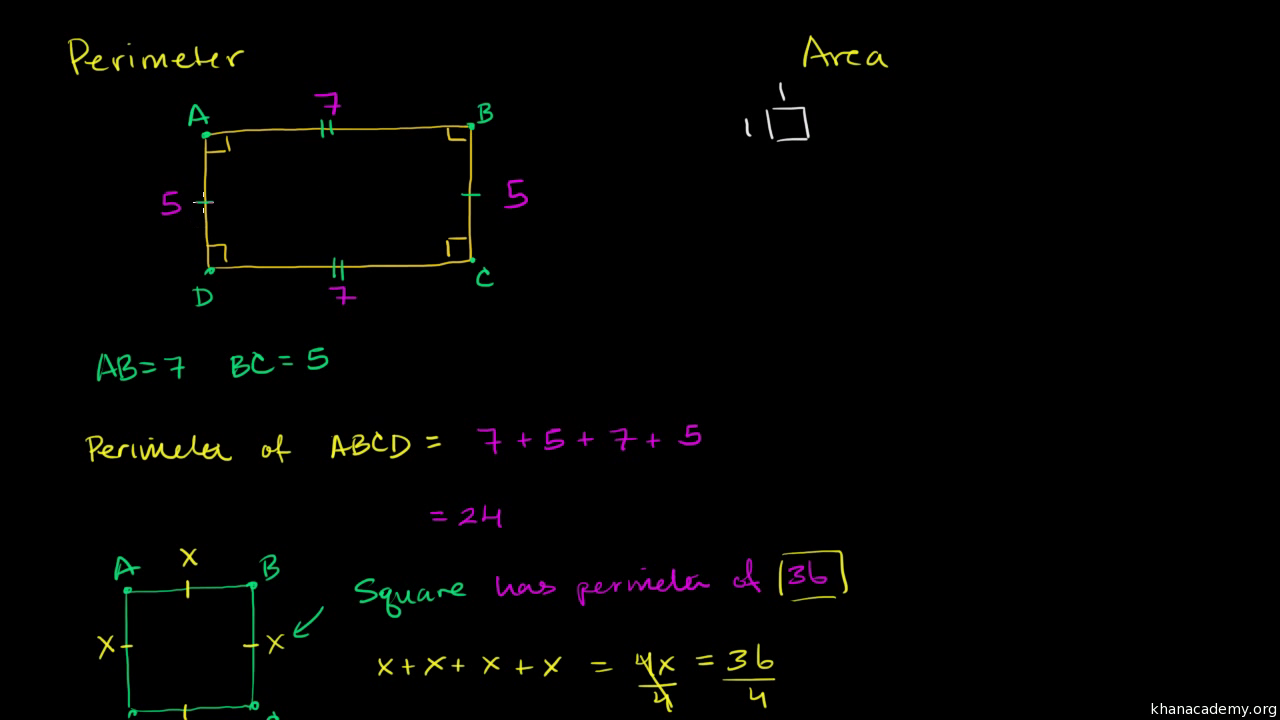 Perimeter
Area
A 7 B
1
1
5 5
D 7 C
AB = 7 BC = 5
Perimeter of ABCD = 7 + 5 + 7 + 5
= 24
A x B
Square has perimeter of 36
x x
x + x + x + x = 4x/4 = 36/4
khanacademy.org